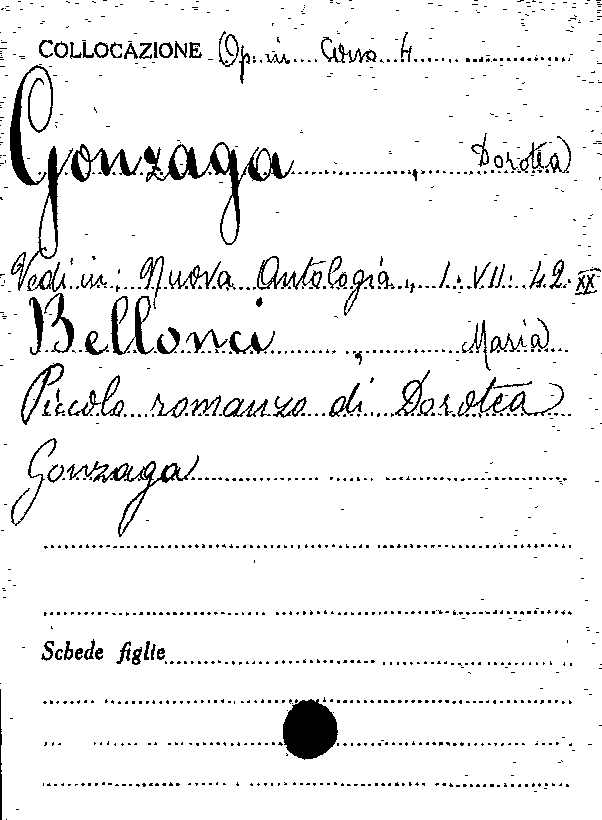 COLLOCAZIONE Op. in Corso 4
Gonzaga, Dorotea
Vedi in: Nuova Antologia, 1. VII. 42. XX
Bellonci, Maria
Piccolo romanzo di Dorotea
Gonzaga
Schede figlie